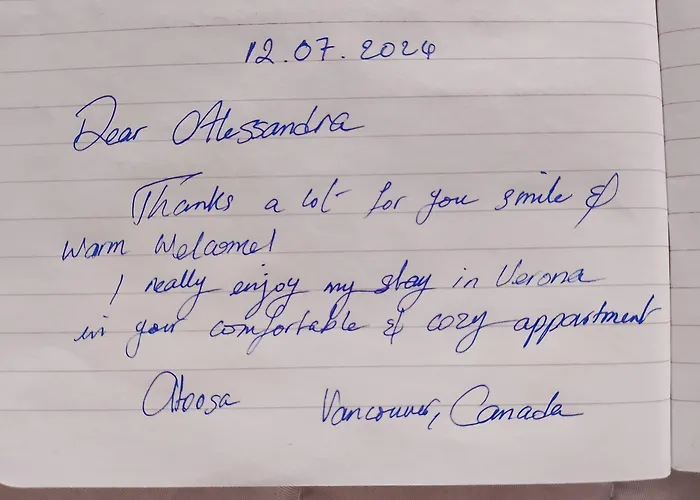 12.07.2024
Dear Alessandra
Thanks a lot for you smile &
warm welcome!
I really enjoy my stay in Verona
in your comfortable & cozy appartment
Atoosa Vancouver, Canada